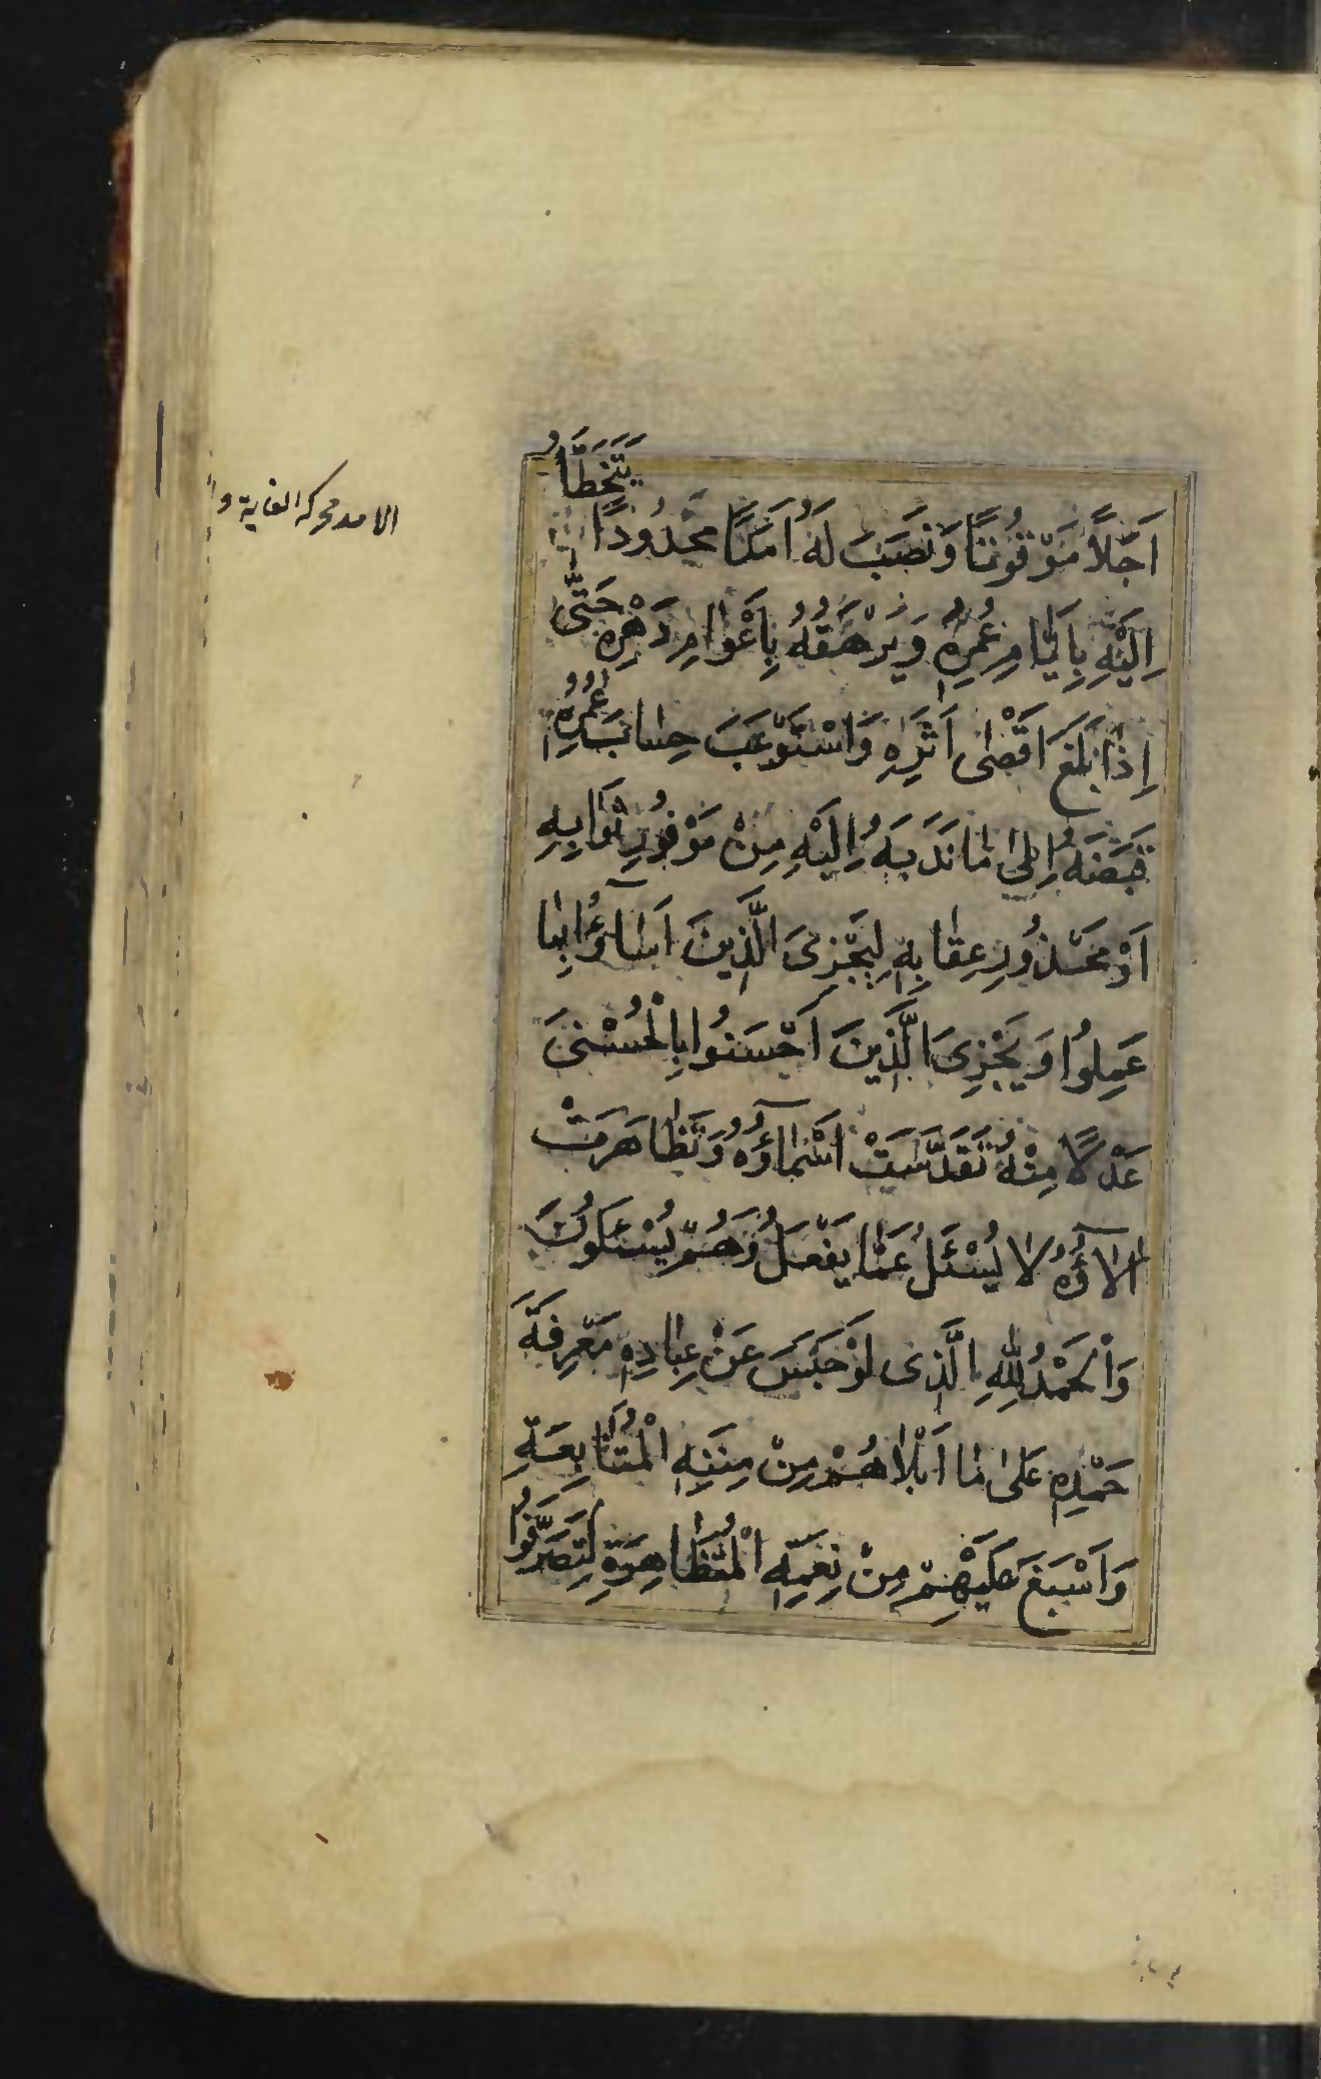 اَجَلًا مَوْقُوتًا وَنَصَبَ لَهُ اَمَدًا مَحْدُودًا يَتَخَطَّأُ
اِلَيْهِ بِاَيَّامِ عُمُرِهِ وَيَرْهَقُهُ بِاَعْوامِ دَهْرِهِ حَتّٰى
اِذا بَلَغَ اَقْصٰى اَثَرِهِ وَاسْتَوْعَبَ حِسابَ عُمُرِهِ
قَبَضَهُ اِلىٰ ما نَدَبَهُ اِلَيْهِ مِنْ مَوْفُورِ ثَوابِهِ
اَوْ مَحْذُورِ عِقابِهِ لِيَجْزِىَ الَّذِينَ اَسآؤُا بِما
عَمِلُوا وَيَجْزِىَ الَّذِينَ اَحْسَنُوا بِالْحُسْنىٰ
عَدْلًا مِنْهُ تَقَدَّسَتْ اَسْمآؤُهُ وَتَظاهَرَتْ
اٰلآؤُهُ لا يُسْئَلُ عَمّا يَفْعَلُ وَهُمْ يُسْئَلُونَ
وَالْحَمْدُ لِلّٰهِ الَّذِى لَوْ حَبَسَ عَنْ عِبادِهِ مَعْرِفَةَ
حَمْدِهِ عَلىٰ ما اَبْلاهُمْ مِنْ مِنَنِهِ الْمُتَتابِعَةِ
وَاَسْبَغَ عَلَيْهِمْ مِنْ نِعَمِهِ الْمُتَظاهِرَةِ لَتَصَرَّفُوا
الامد محركة الغاية و